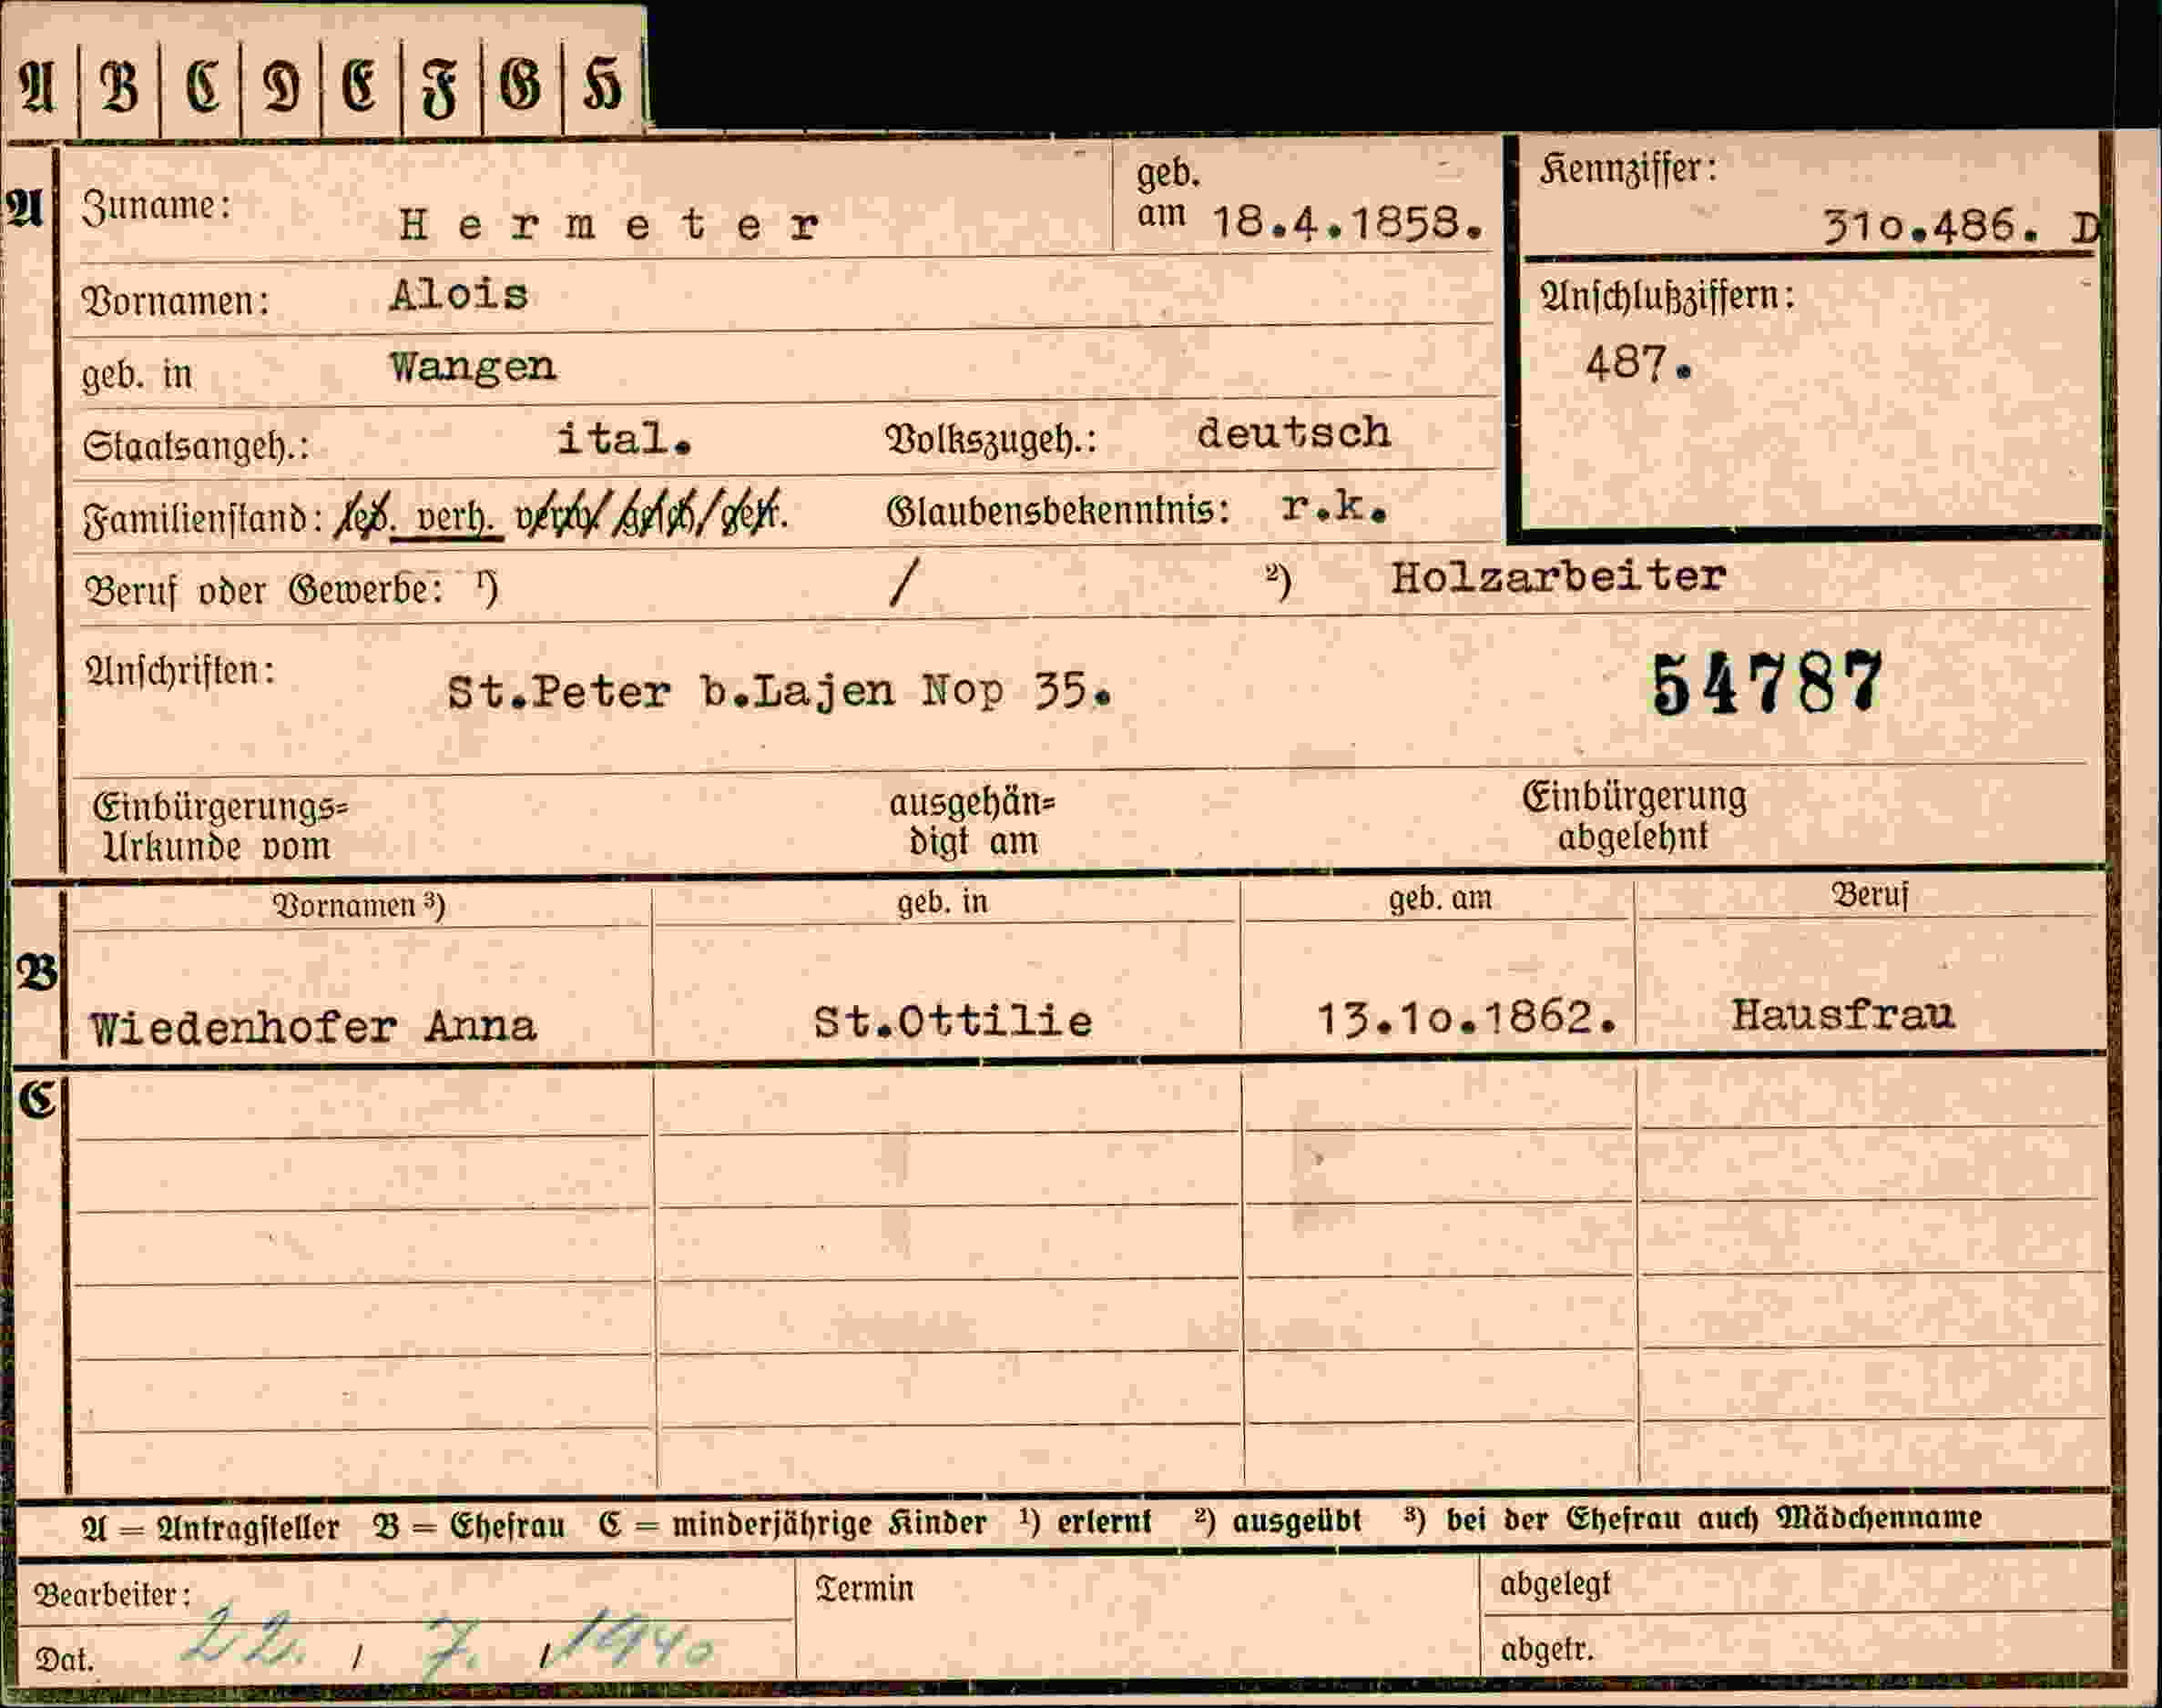 A B C D E F G H
A
Zuname: Hermeter geb. am 18.4.1858.
Kennziffer: 310.486. D
Vornamen: Alois
Anschlußziffern: 487.
geb. in Wangen
Staatsangeh.: ital. Volkszugeh.: deutsch
Familienstand: led. verh. verw. gesch. getr. Glaubensbekenntnis: r.k.
Beruf oder Gewerbe: ¹) / ²) Holzarbeiter
Anschriften: St.Peter b.Lajen Nop 35. 54787
Einbürgerungs=
Urkunde vom
ausgehän=
digt am
Einbürgerung
abgelehnt
Vornamen ³) geb. in geb. am Beruf
B
Wiedenhofer Anna St.Ottilie 13.10.1862. Hausfrau
C
A = Antragsteller B = Ehefrau C = minderjährige Kinder ¹) erlernt ²) ausgeübt ³) bei der Ehefrau auch Mädchenname
Bearbeiter: Termin abgelegt
Dat. 22. / 7. / 1940 abgetr.